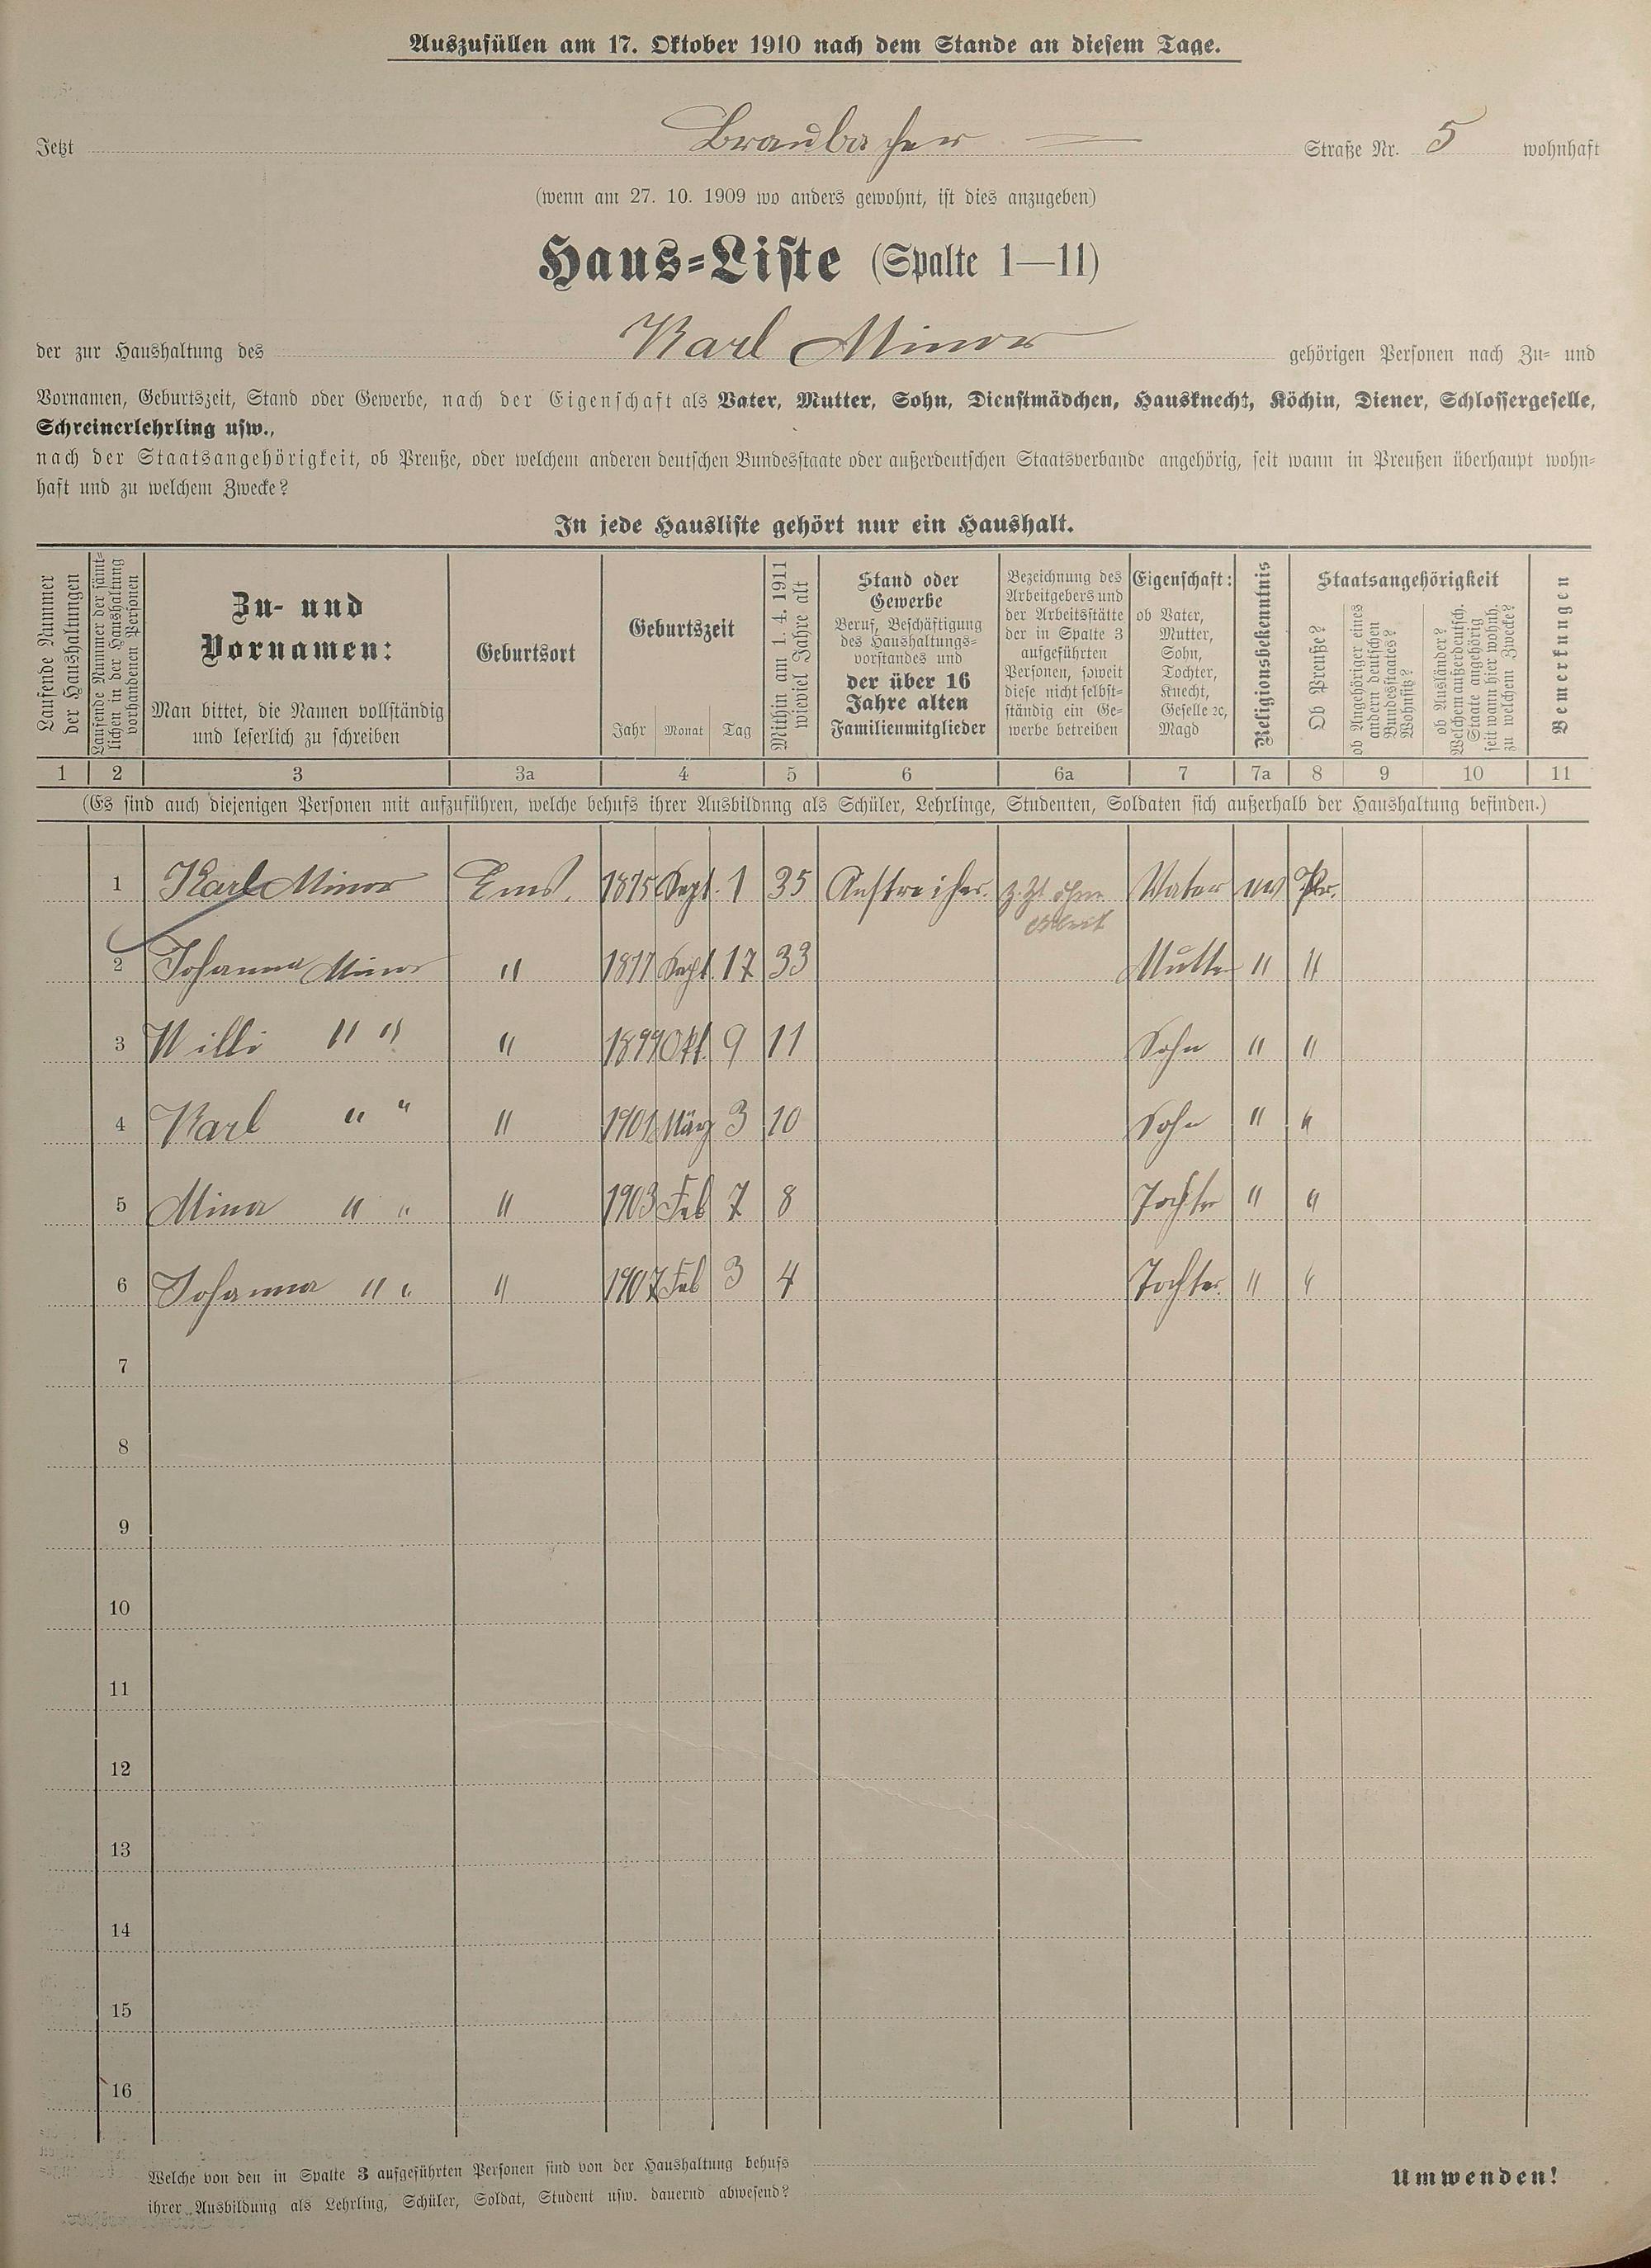 Auszufüllen am 17. Oktober 1910 nach dem Stande an diesem Tage.
Jetzt Braubacher — Straße Nr. 5 wohnhaft
(wenn am 27. 10. 1909 wo anders gewohnt, ist dies anzugeben)
Haus-Liste (Spalte 1—11)
der zur Haushaltung des Karl Minor gehörigen Personen nach Zu- und
Vornamen, Geburtszeit, Stand oder Gewerbe, nach der Eigenschaft als Vater, Mutter, Sohn, Dienstmädchen, Hausknecht, Köchin, Diener, Schlossergeselle,
Schreinerlehrling usw.,
nach der Staatsangehörigkeit, ob Preuße, oder welchem anderen deutschen Bundesstaate oder außerdeutschen Staatsverbande angehörig, seit wann in Preußen überhaupt wohn-
haft und zu welchem Zwecke?
In jede Hausliste gehört nur ein Haushalt.
Laufende Nummer
der Haushaltungen
Laufende Nummer der sämt-
lichen in der Haushaltung
vorhandenen Personen
Zu- und
Vornamen:
Man bittet, die Namen vollständig
und leserlich zu schreiben
Geburtsort
Geburtszeit
Jahr Monat Tag
Mithin am 1. 4. 1911
wieviel Jahre alt
Stand oder
Gewerbe
Beruf, Beschäftigung
des Haushaltungs-
vorstandes und
der über 16
Jahre alten
Familienmitglieder
Bezeichnung des
Arbeitgebers und
der Arbeitsstätte
der in Spalte 3
aufgeführten
Personen, soweit
diese nicht selbst-
ständig ein Ge-
werbe betreiben
Eigenschaft:
ob Vater,
Mutter,
Sohn,
Tochter,
Knecht,
Geselle ꝛc,
Magd
Religionsbekenntnis
Staatsangehörigkeit
Ob Preuße?
ob Angehöriger eines
andern deutschen
Bundesstaates?
Wohnsitz?
ob Ausländer?
Welchem außerdeutsch.
Staate angehörig
seit wann hier wohnh.
zu welchem Zwecke?
Bemerkungen
1 2 3 3a 4 5 6 6a 7 7a 8 9 10 11
(Es sind auch diejenigen Personen mit aufzuführen, welche behufs ihrer Ausbildung als Schüler, Lehrlinge, Studenten, Soldaten sich außerhalb der Haushaltung befinden.)
1 Karl Minor Ems. 1875 Sept. 1 35 Anstreicher. z. Zt ohne Vater ev Pr.
Arbeit
2 Johanna Minor " 1877 Sept. 17 33 Mutter " "
3 Willi " " " 1899 Okt. 9 11 Sohn " "
4 Karl " " " 1901 März 3 10 Sohn " "
5 Mina " " " 1903 Feb 7 8 Tochter " "
6 Johanna " " " 1907 Feb 3 4 Tochter. " "
7
8
9
10
11
12
13
14
15
16
Welche von den in Spalte 3 aufgeführten Personen sind von der Haushaltung behufs
ihrer Ausbildung als Lehrling, Schüler, Soldat, Student usw. dauernd abwesend?
Umwenden!